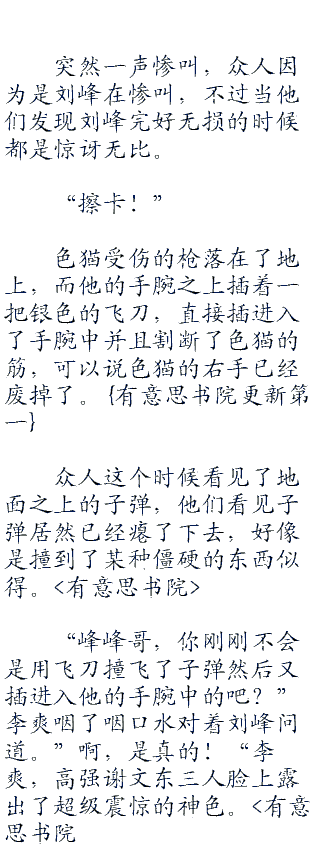 突然一声惨叫，众人因
为是刘峰在惨叫，不过当他
们发现刘峰完好无损的时候
都是惊讶无比。
“擦卡！”
色猫受伤的枪落在了地
上，而他的手腕之上插着一
把银色的飞刀，直接插进入
了手腕中并且割断了色猫的
筋，可以说色猫的右手已经
废掉了。{有意思书院更新第
一}
众人这个时候看见了地
面之上的子弹，他们看见子
弹居然已经瘪了下去，好像
是撞到了某种僵硬的东西似
得。<有意思书院>
“峰峰哥，你刚刚不会
是用飞刀撞飞了子弹然后又
插进入他的手腕中的吧？”
李爽咽了咽口水对着刘峰问
道。”啊，是真的！“李
爽，高强谢文东三人脸上露
出了超级震惊的神色。<有意
思书院